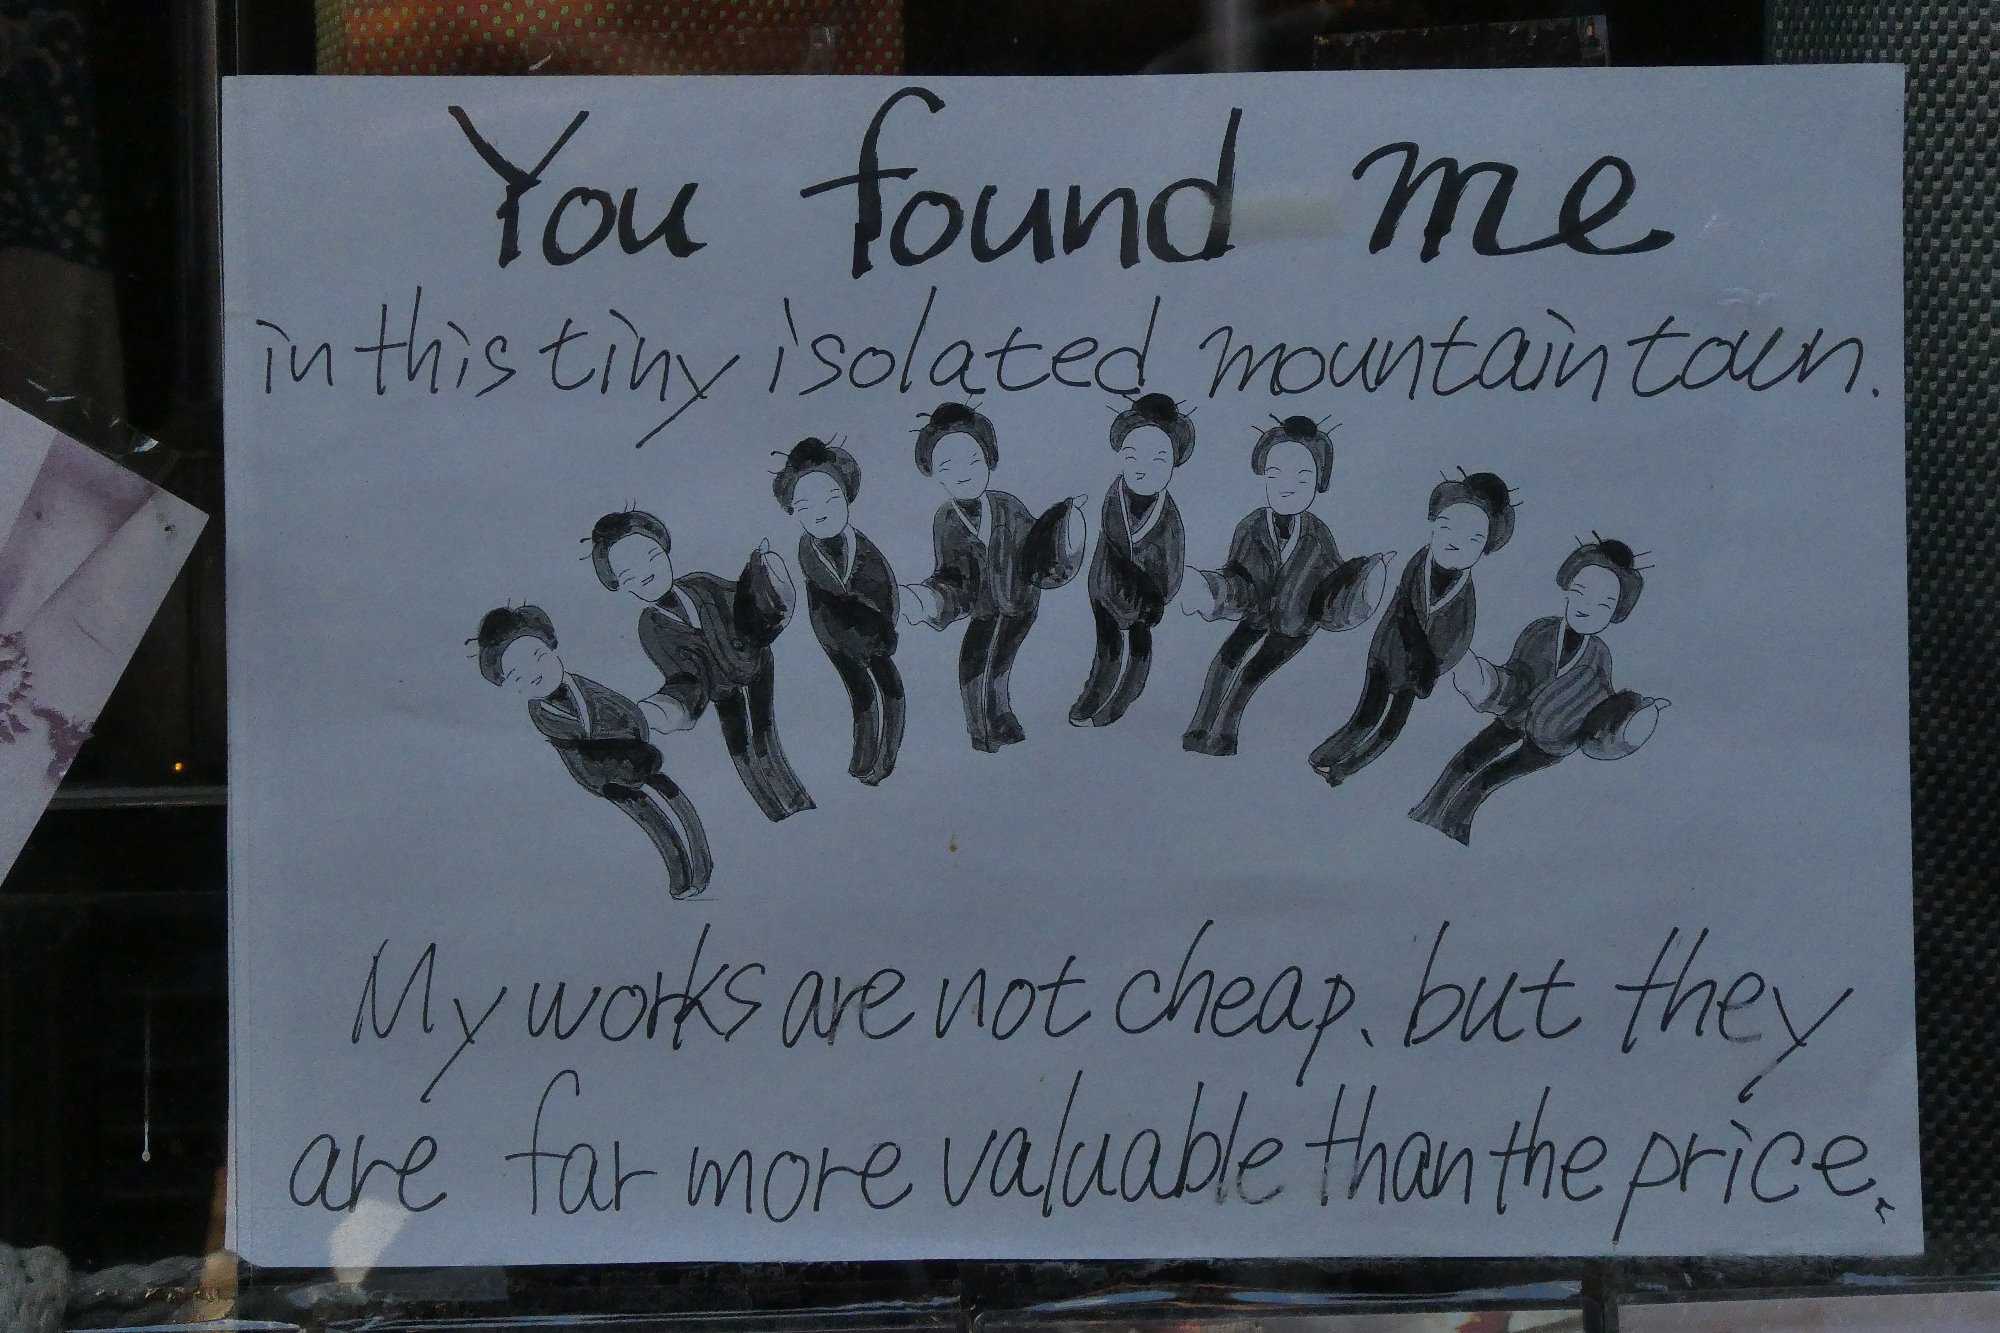 You found me
in this tiny isolated mountain town.
My works are not cheap, but they
are far more valuable than the price.